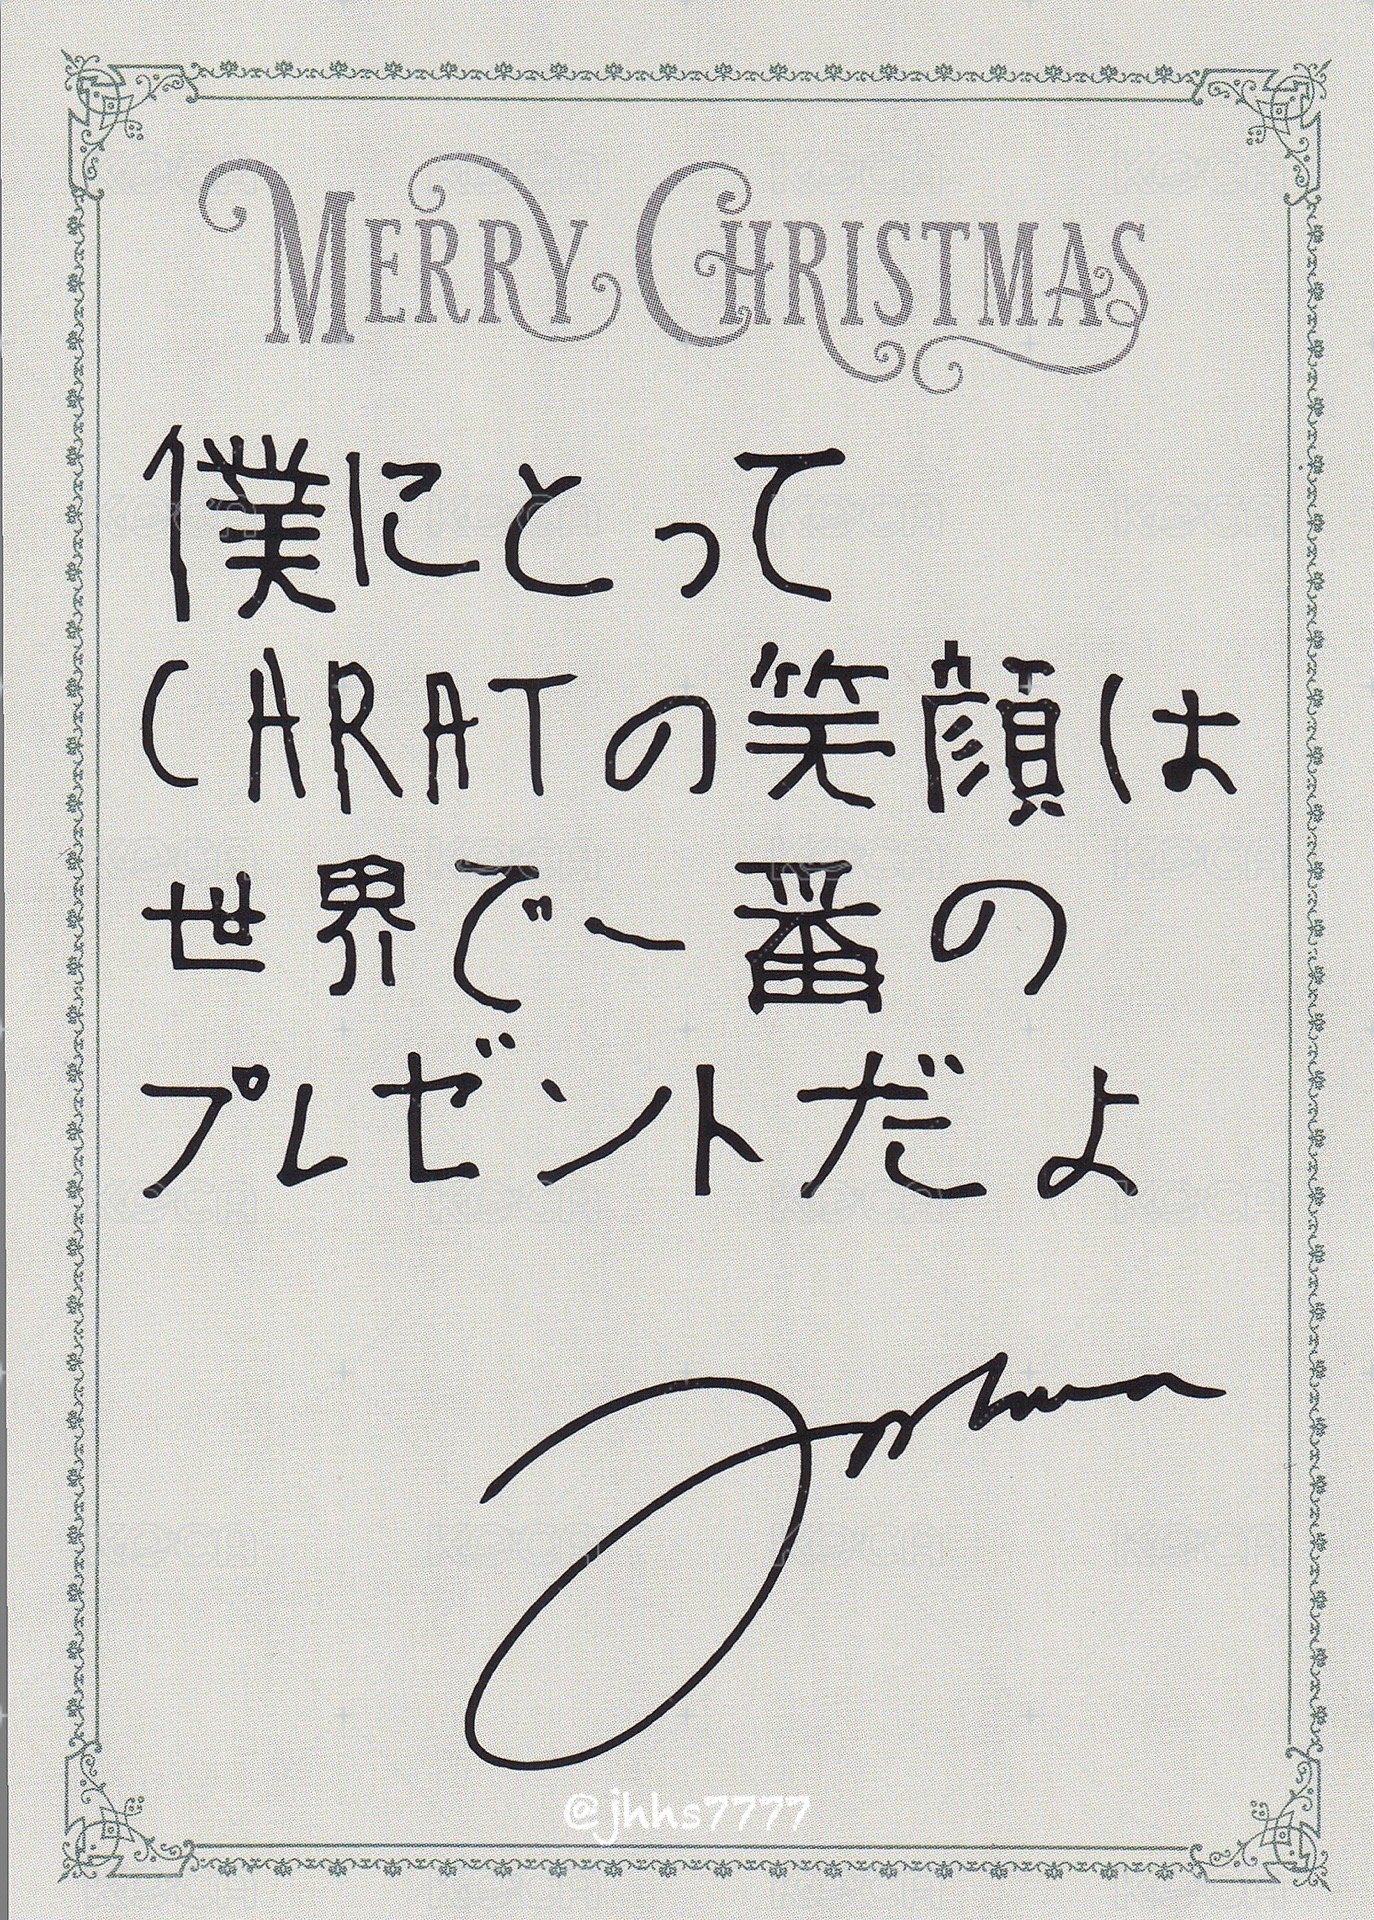 MERRY CHRISTMAS
僕にとって
CARATの笑顔は
世界で一番の
プレゼントだよ
Joshua
@jhhs7777